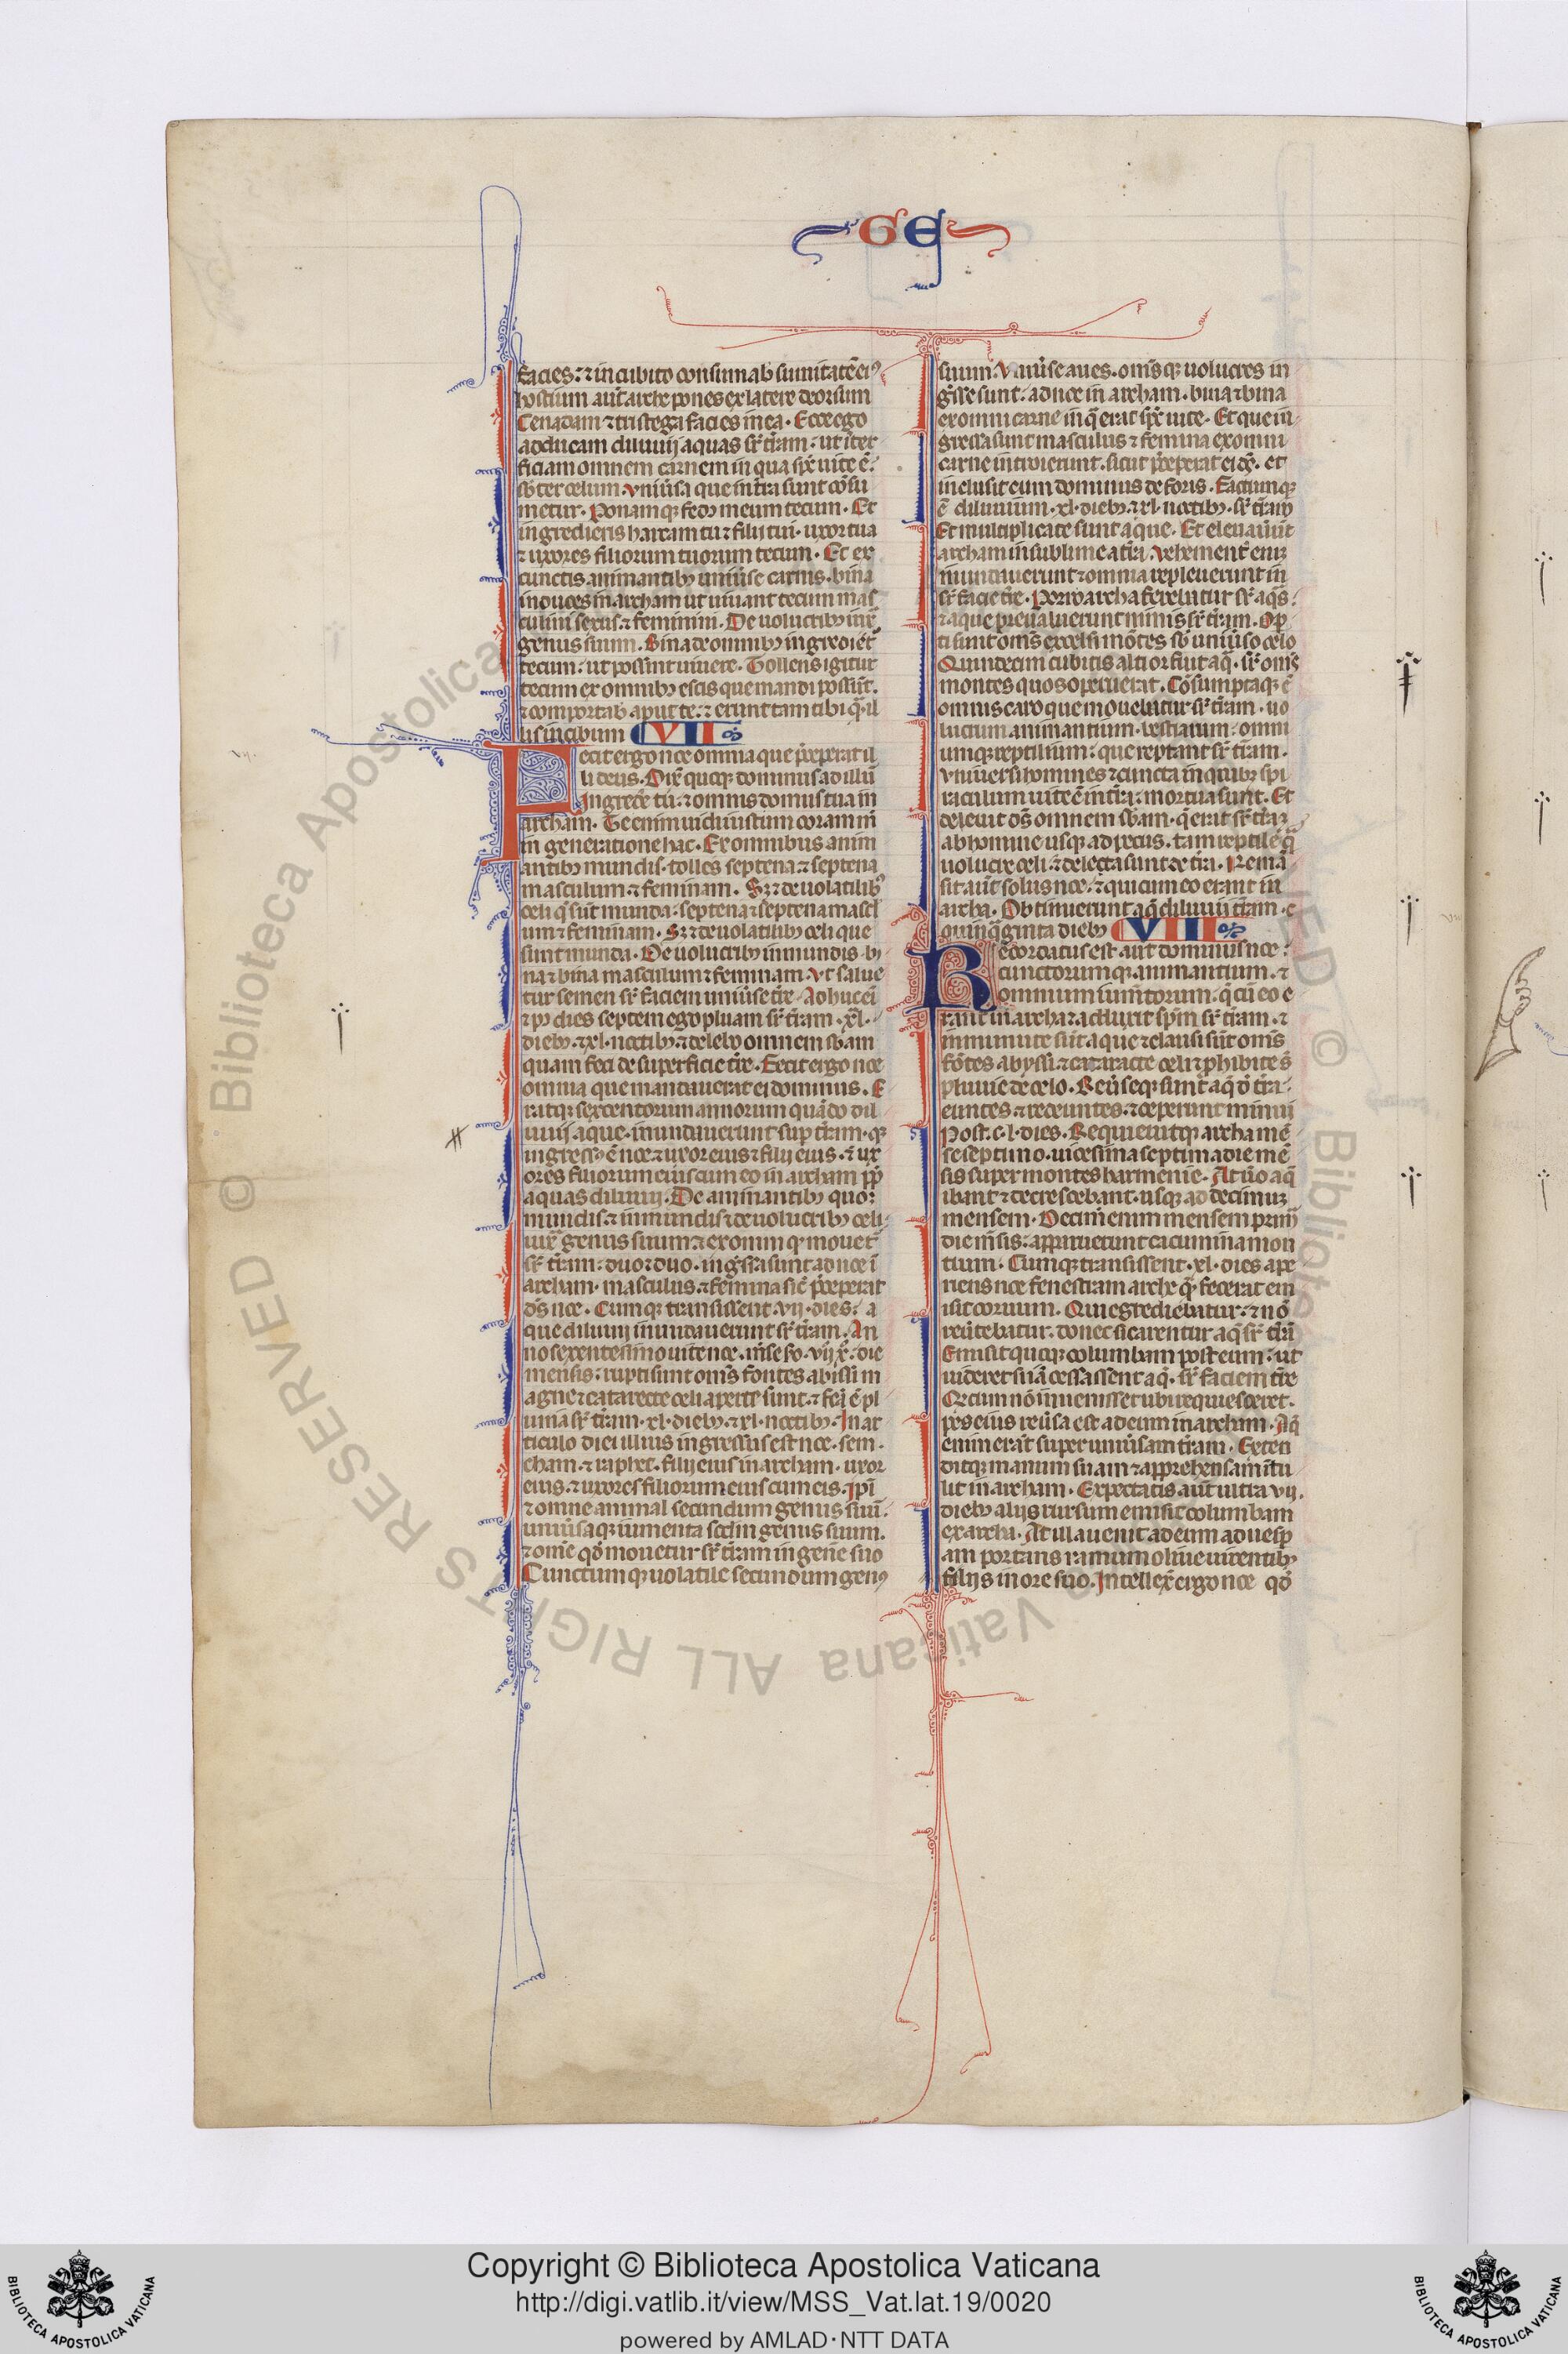 GE
facies: ⁊ in cubito consu̅nab̾ su̅mitate̅ eiꝰ
hostium aut̅ arche pones ex latere deorsum
Cenac̅la ⁊ tristega facies in ea. Ecce ego
adducam diluuij aquas sr̅ t̅ram: ut int̅er
ficiam omnem carnem in qua sp̅r uite e̅.
sb̅ter celum. vniu̅sa que in t̅ra sunt co̅su
metur. Ponamqꝫ fedꝰ meum tecum. Et
ingredieris harcam tu ⁊ filij tui. uxor tua
⁊ uxores filiorum tuorum tecum. Et ex
cunctis animantibꝫ uniu̅se carnis. bina
induces in archam ut uiuant tecum mas
culini sexus ⁊ feminini. De uolucribꝫ iux̅
genus suum. Bina de omnibꝫ ingredie̅t̅
tecum: ut possint uiuere. Tolles igitur
tecum ex omnibꝫ escis que mandi possu̅t.
⁊ comportab̾ aput te: ⁊ erunt tam tibi q̅ il
lis in cibum VII
Fecit ergo noe omnia que p̅ceperat il
li deus. Dix̅ quoqꝫ dominus ad illu̅
Ingrede̅ tu ⁊ omnis domus tua in
archam. Te enim uidi iustum coram m̅
in generatione hac. Ex omnibus anim
antibꝫ mundis. tolles septena ⁊ septena
masculum ⁊ feminam. Sꝫ ⁊ de uolatilibꝰ
celi q̅ su̅t munda: septena ⁊ septena mascl̅
um ⁊ feminam. Sꝫ ⁊ de uolatilibꝫ celi que
sunt munda. De uolucribꝫ inmundis. bi
na ⁊ bina masculum ⁊ feminam. Vt salue
tur semen sr̅ faciem uniu̅se t̅re. Adhuc ei̅
⁊ pꝰ dies septem ego pluam sr̅ t̅ram. xl.
diebꝫ. ⁊ xl. noctibꝫ: ⁊ delebo omnem sb̅am
quam feci de superficie t̅re. Fecit ergo noe
omnia que mandauerat ei dominus. E
ratqꝫ sexcentorum annorum qua̅do dil
uuij aque. inundauerunt sup̅ t̅ram. qꝫ
ingressꝰ e̅ noe ⁊ uxor eius ⁊ filij eius. ⁊ ux
ores filiorum eius cum eo in archam pp̅
aquas diluuij. De animantibꝫ quoqꝫ
mundis: ⁊ inmundis ⁊ de uolucribꝫ celi.
iux̅ genus suum ⁊ ex omni q̅ mouet̅
sr̅ t̅ram: duo ⁊ duo. ing̅ssa sunt ad noe i̅
archam. masculus ⁊ femina sic̅ p̅ceperat
ds̅ noe. Cumqꝫ transissent. vij. dies: a
que diluuij inundauerunt sr̅ t̅ram. An
mensis: rupti sunt oms̅ fontes abissi m
agne ⁊ cataracte celi aperte sunt: ⁊ fc̅a e̅ pl
uuia sr̅ t̅ram. xl. diebꝫ. ⁊ xl. noctibꝫ. In ar
ticulo diei illius ingressus est noe. sem.
cham. ⁊ iaphet. filij eius in archam. uxor
eius. ⁊ uxores filiorum eius cum eis. Ip̅i
⁊ omne animal secundum genus suu̅.
uniu̅saqꝫ iumenta scd̅m genus suum.
⁊ om̅e qd̅ mouetur sr̅ t̅ram in gene̅ suo
Cunctumqꝫ uolatile secundum genꝰ
suum. Vniu̅se aues. oms̅qꝫ uolucres in
g̅sse sunt: ad noe in archam. bina ⁊ bina
ex omni carne in q̅ erat sp̅r uite. Et que in
gressa sunt masculus ⁊ femina ex omni
carne introierunt. sicut p̅ceperat ei ds̅. et
inclusit eum dominus de foris. Factumqꝫ
e̅ diluuium. xl. diebꝫ. ⁊ xl. noctibꝫ. sr̅ t̅ram
Et multiplicate sunt aque. Et eleuau̅unt
archam in sublime a t̅ra. Vehement̅ eni̅
inundauerunt ⁊ omnia repleuerunt in
sr̅facie t̅re. Porro archa ferebatur sr̅ aq̅s:
⁊ aque preualuerunt nimis sr̅ t̅ram. Op̅
ti sunt oms̅ excelsi mo̅tes sb̅ uniu̅so celo
Quindecim cubitis altior fuit aq̅. sr̅ oms̅
montes quos operuerat. Co̅sumptaqꝫ e̅
omnis caro que mouebatur sr̅ t̅ram. uo
lucrum animantium. bestiarum: omni
umqꝫ reptilium: que reptant sr̅ t̅ram.
Vniuersi homines ⁊ cuncta in quibꝫ spi
raculum uite e̅ in t̅ra: mortua sunt. Et
deleuit ds̅ omnem sb̅am. q̅ erat sr̅ t̅ram
ab homine usqꝫ ad pecus. tam reptile q̅
uolucre celi: ⁊ delecta sunt de t̅ra. Rema̅
sit aut̅ solus noe: ⁊ qui cum eo erant in
archa. Obtinuerunt aq̅ diluuij t̅ram. c
quinq̅ginta diebꝫ VIII
Recordatus est. aut̅ dominus noe:
cunctorumqꝫ. animantium. ⁊
omnium ium̅torum. q̅ cu̅ eo e
rant in archa: ⁊ adduxit sp̅m sr̅ t̅ram. ⁊
inminute su̅t aque ⁊ clausi su̅t oms̅
fo̅tes abyssi: ⁊ cataracte celi ⁊ p̅hibite s̅
pluuie de celo. Reu̅seqꝫ sunt aq̅ d̅ t̅ra:
euntes. ⁊ redeuntes. ⁊ ceperunt minui
Post. c. l. dies. Requieuitqꝫ archa me̅
se septimo. uicesima septima die me̅
sis super montes harmenie. At u̅o aq̅
ibant ⁊ decrescebant. usqꝫ ad decimum
mensem. Decim̅ enim mensem primꝰ
die m̅sis: apparuerunt cacumina mon
tium. Cumqꝫ transissent. xl. dies ape
riens noe fenestram arche q̅. fecerat em
isit coruum. Qui egrediebatur: ⁊ no̅
reu̅tebatur: donec sicarentur aq̅ sr̅ t̅ra̅
Emisit quoqꝫ columbam post eum: ut
uideret si ia̅ cessassent aq̅. sr̅ faciem t̅re
Q̅ cum no̅ inuenisset ubi requiesceret.
pes eius reu̅sa est ad eum in archam. Aq̅
enim erant̅ super uniu̅sam t̅ram. Exten
ditqꝫ manum suam ⁊ apprehensam i̅tu
lit in archam. Expectatis aut̅ ultra vij.
diebꝫ alijs rursum emisit columbam
ex archa. At illa uenit ad eum ad uesp̅
am portans ramum oliue uirentibꝫ
folijs in ore suo. Intellex̅ ergo noe qd̅
Copyright © Biblioteca Apostolica Vaticana
http://digi.vatlib.it/view/MSS_Vat.lat.19/0020
powered by AMLAD·NTT DATA
BIBLIOTECA APOSTOLICA VATICANA
BIBLIOTECA APOSTOLICA VATICANA
© Biblioteca Apostolica Vaticana ALL RIGHTS RESERVED